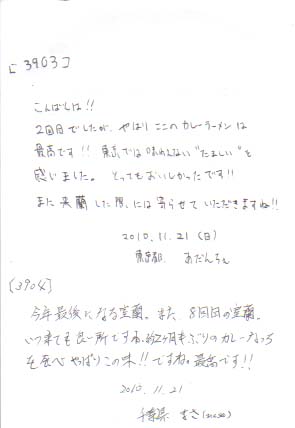 [3903]
こんばんは!!
2回目でしたが、やはりここのカレーラーメンは
最高です!! 東京では味わえない"たましい"を
感じました。とってもおいしかったです!!
また来蘭した際には寄らせていただきますね!!
2010.11.21(日)
東京都
[3904]
今年最後になる室蘭。また、8回目の室蘭。
いつ来ても良い所ですね。約2ヶ月半ぶりのカレーなっち
を食べ やっぱりこの味!!ですね。最高です!!
2010.11.21
千葉県 まさ